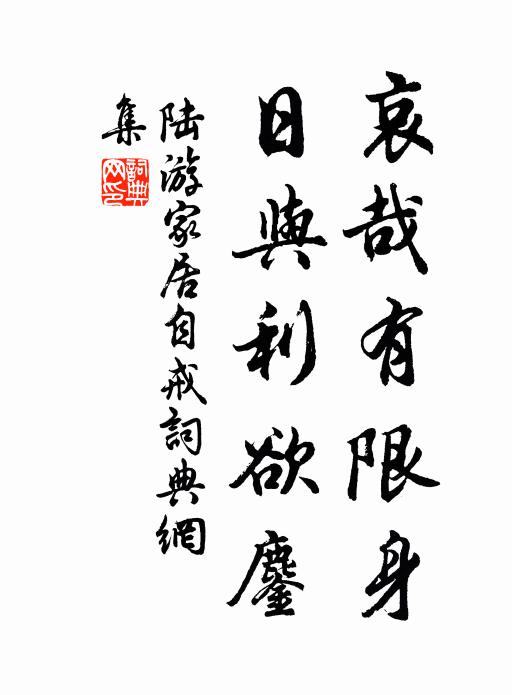 哀哉有限身
日與利欲鏖
陸游家居自戒詞典網
集
詞典
网印